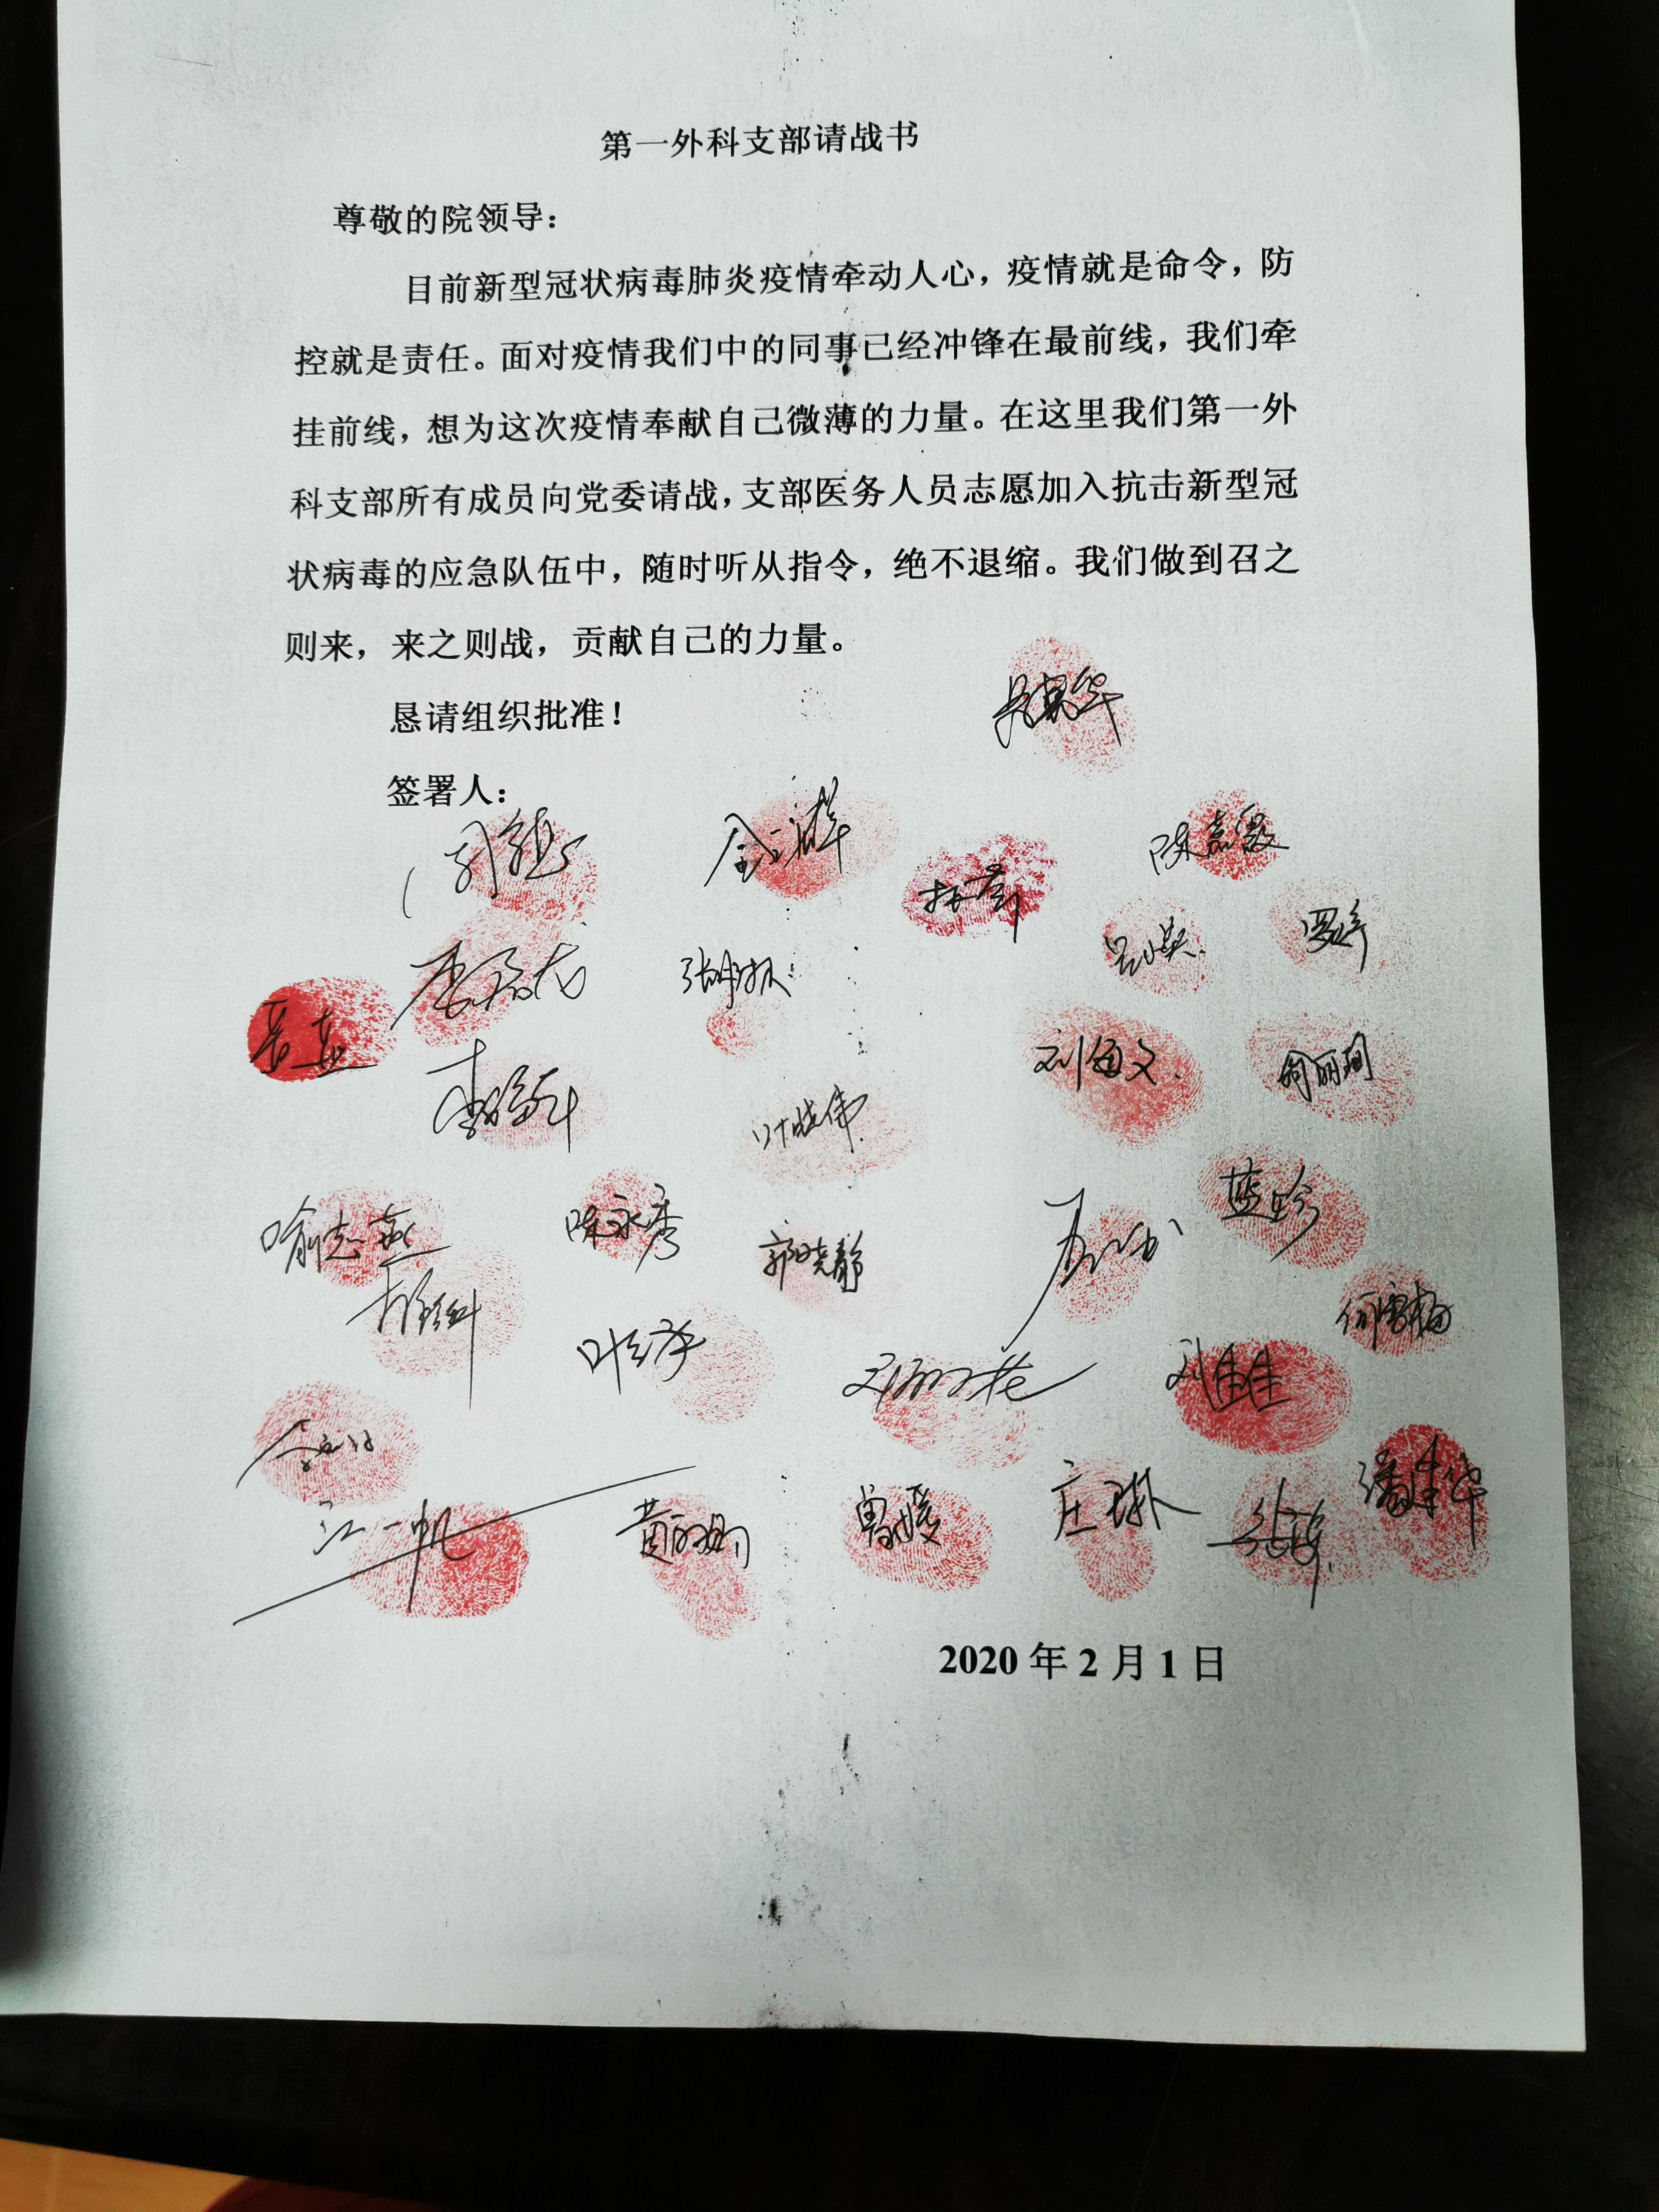 第一外科支部请战书
尊敬的院领导：
目前新型冠状病毒肺炎疫情牵动人心，疫情就是命令，防
控就是责任。面对疫情我们中的同事已经冲锋在最前线，我们牵
挂前线，想为这次疫情奉献自己微薄的力量。在这里我们第一外
科支部所有成员向党委请战，支部医务人员志愿加入抗击新型冠
状病毒的应急队伍中，随时听从指令，绝不退缩。我们做到召之
则来，来之则战，贡献自己的力量。
恳请组织批准！
签署人：
陈嘉微
刘海文
何丽珣
叶晓伟
喻志燕
陈永秀
郭晓静
蓝珍
何雪梅
刘佳佳
江一帆
曾媛
庄琳
潘建华
2020 年 2 月 1 日